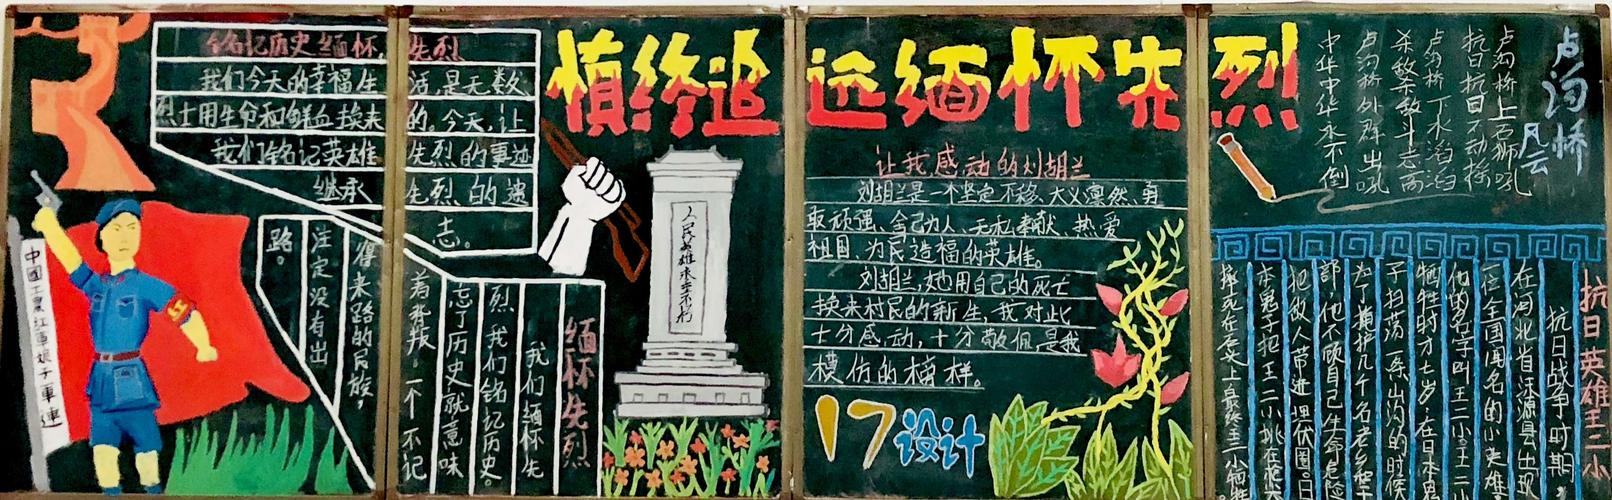 慎终追远缅怀先烈
铭记历史缅怀,先烈
我们今天的幸福生活,是无数
烈士用生命和鲜血换来的。今天,让
我们铭记英雄先烈的事迹
继承先烈的遗
志。
中國工農紅軍娘子軍連
缅怀先烈
我们缅怀先
烈我们铭记历史。
忘了历史就意味
着背叛。一个不记
得来路的民族,
注定没有出
路。
人民英雄永垂不朽
让我感动的刘胡兰
刘胡兰是一个坚定不移、大义凛然、勇
敢顽强、舍己为人、无私奉献、热爱
祖国、为民造福的英雄。
刘胡兰,她用自己的死亡
换来村民的新生,我对此
十分感动,十分敬佩,是我
模仿的榜样。
17设计
卢沟桥
风云
卢沟桥上石狮吼
抗日抗日不动摇
卢沟桥下水滔滔
杀敌杀敌斗志高
卢沟桥外群出吼
中华中华永不倒
抗日英雄王二小
抗日战争时期,
在河北省涞源县出现
一位全国闻名的小英雄
他的名字叫王二小。王二
牺牲时才七岁,在日本鬼
子扫荡一条山沟的时候
为了掩护几个名老乡和干
部,他不顾自己生命危险
把敌人带进埋伏圈,日
本鬼子把王二小挑在枪尖
摔死在石头上,最终王二小牺牲